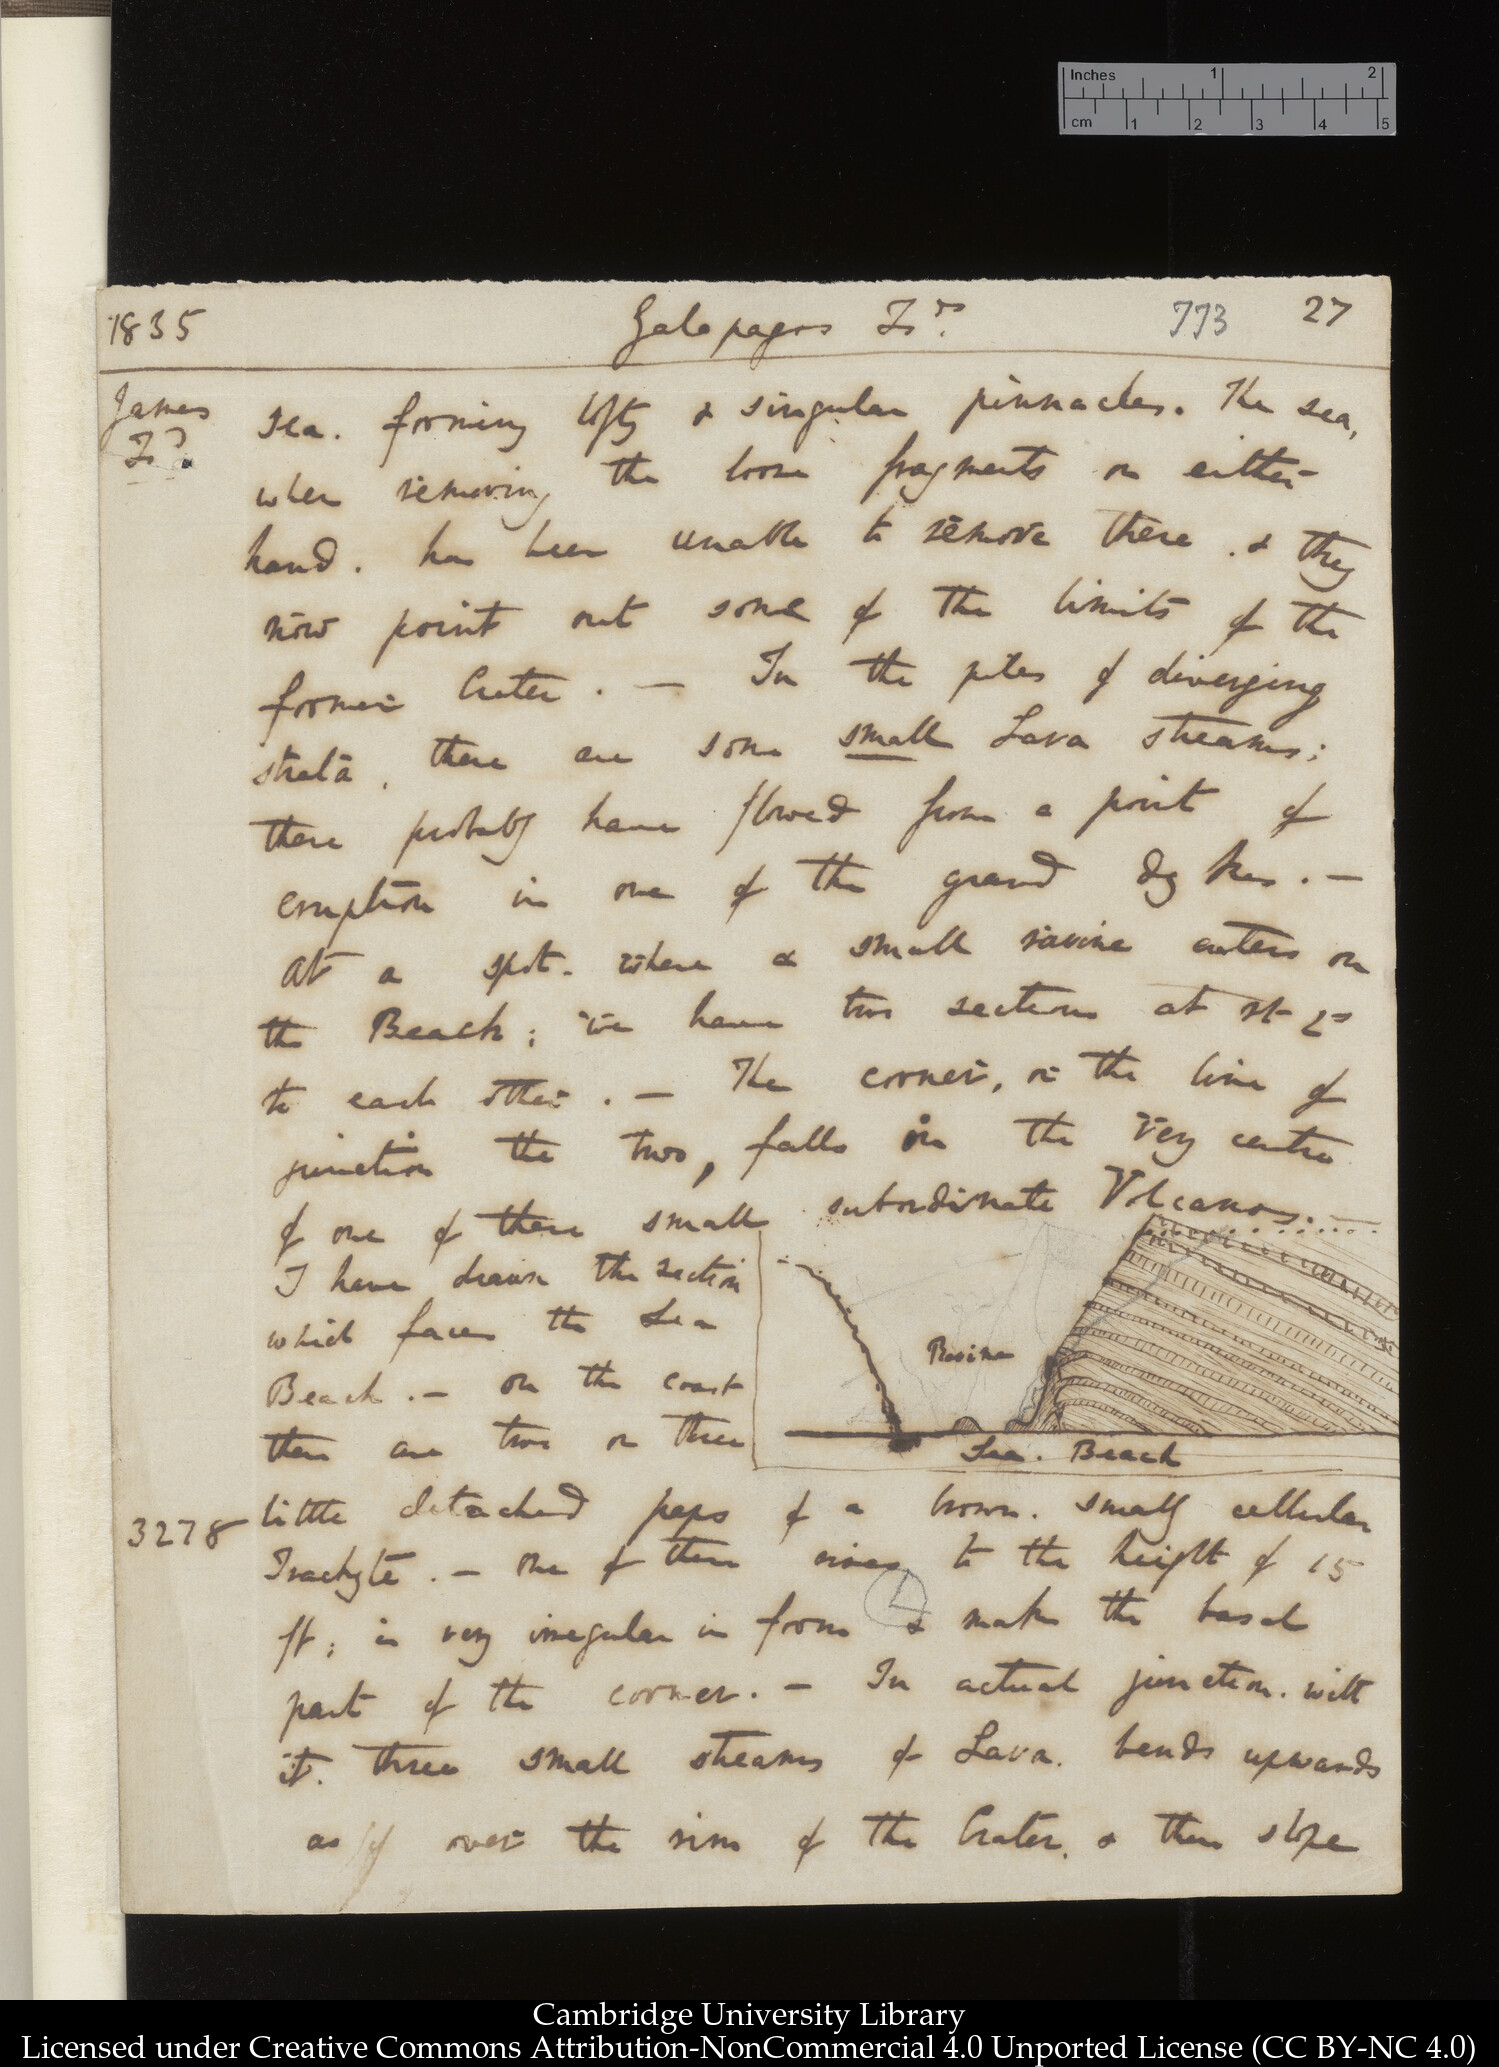 Inches 1 2
cm 1 2 3 4 5
1835 Galapagos Is.ds 773 27
James
Isd
sea. forming lofty & singular pinnacles. The sea,
when removing the loose fragments on either
hand. has been unable to remove these. & they
now point out some of the limits of the
former Crater. — In the piles of diverging
strata, there are some small Lava streams;
these probably have flowed from a point of
eruption in one of the grand dykes. —
At a spot. where a small ravine enters on
the Beach; we have two sections at rt Ls
to each other. — The corner, or the line of
junction the two, falls in the very centre
of one of these small subordinate Volcanos. —
I have drawn the section
which faces the Sea
Beach. — on the coast
there are two or three
Ravine
Sea. Beach
3278 little detached paps of a brown. small cellular
Trachyte. — one of these rises to the height of 15
ft; is very irregular in form & makes the basal
part of the corner. — In actual junction. with
it. three small streams of Lava. bends upwards
as if over the rim of the Crater. & then slope
Cambridge University Library
Licensed under Creative Commons Attribution-NonCommercial 4.0 Unported License (CC BY-NC 4.0)